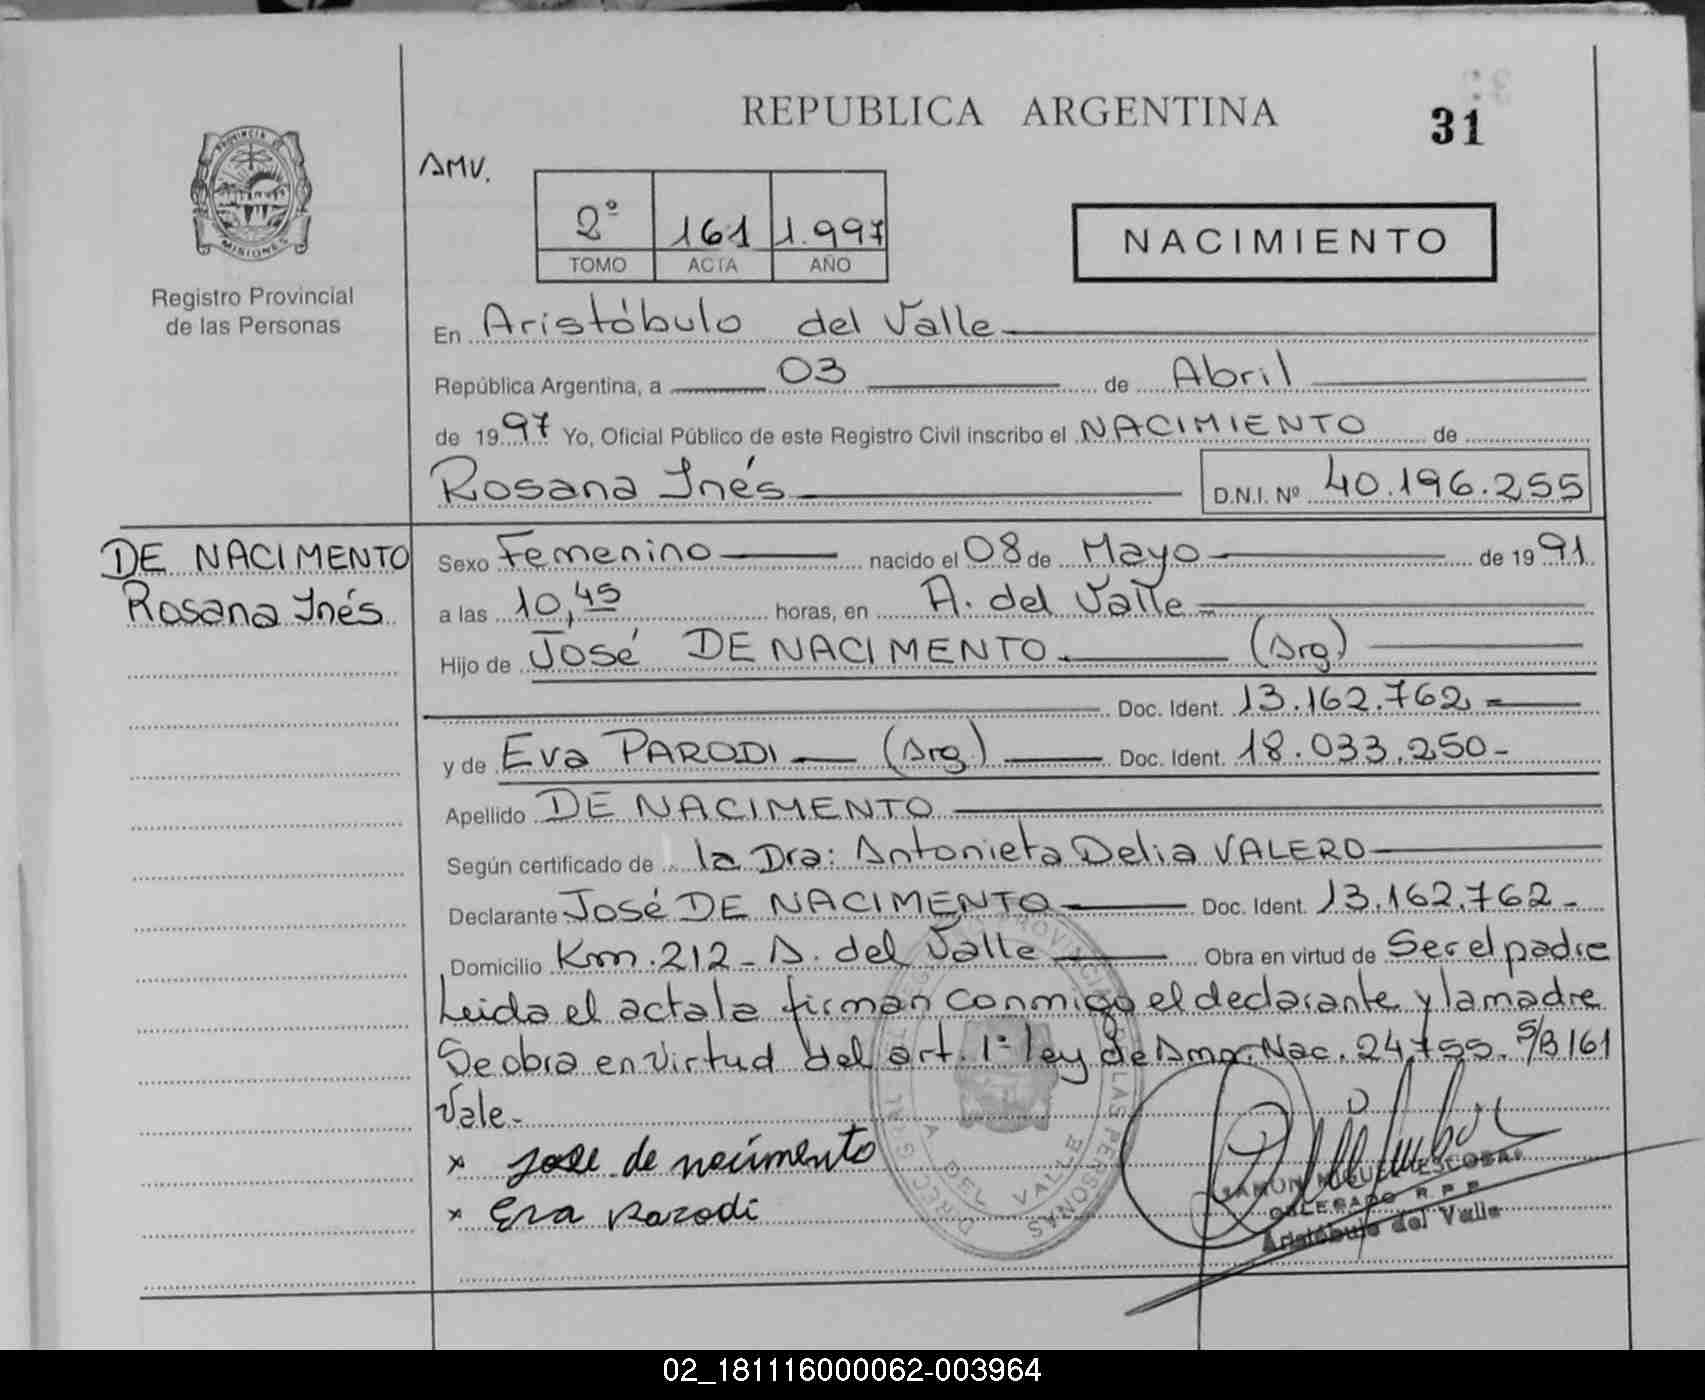 REPUBLICA ARGENTINA
31
AMV.
PROVINCIA DE
MISIONES
Registro Provincial
de las Personas
2º 161 1.997
TOMO ACTA AÑO
NACIMIENTO
En Aristóbulo del Valle
República Argentina, a 03 de Abril
de 1997 Yo, Oficial Público de este Registro Civil inscribo el NACIMIENTO de
Rosana Inés D.N.I. Nº 40.196.255
DE NACIMENTO
Rosana Inés
Sexo Femenino nacido el 08 de Mayo de 1991
a las 10,45 horas, en A. del Valle
Hijo de José DE NACIMENTO (Arg)
Doc. Ident. 13.162.762
y de Eva PARODI (Arg.) Doc. Ident. 18.033.250-
Apellido DE NACIMENTO
Según certificado de la Dra: Antonieta Delia VALERO
Declarante José DE NACIMENTO Doc. Ident. 13.162.762-
Domicilio Km.212- A. del Valle Obra en virtud de Ser el padre
Leida el acta la firman conmigo el declarante y la madre
Se obra en virtud del art. 1º ley de Amp. Nac. 24.755. S/B 161
Vale-
x jose de nacimento
x Eva Parodi
A. DEL VALLE
RAMON MIGUEL ESCOBAR
DELEGADO R.P.P.
Aristóbulo del Valle
02_181116000062-003964